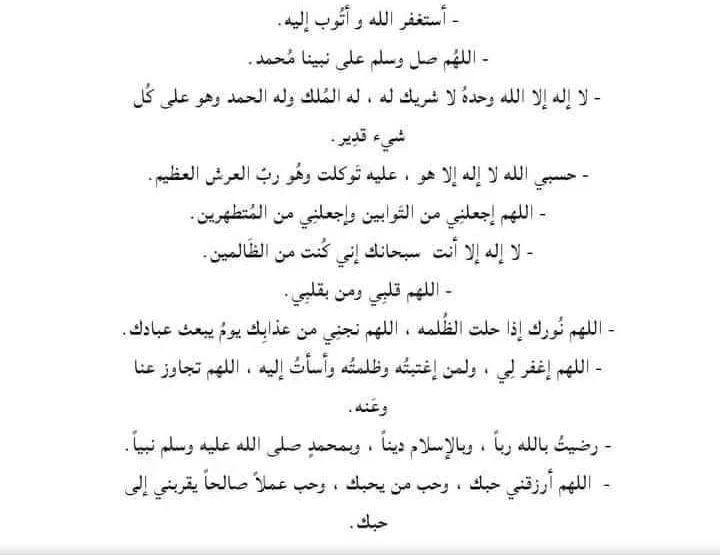 - أستغفر الله و أتُوب إليه.
- اللهُم صل وسلم على نبينا مُحمد.
- لا إله إلا الله وحدهُ لا شريك له ، له المُلك وله الحمد وهو على كُل
شيء قدِير.
- حسبي الله لا إله إلا هو ، عليه تَوكلت وهُو ربّ العرش العظيم.
- اللهم إجعلنِي من التَوابين وإجعلنِي من المُتطهرين.
- لا إله إلا أنت سبحانك إني كُنت من الظَالمين.
- اللهم قلبِي ومن بقلبِي.
- اللهم نُورك إذا حلت الظُلمه ، اللهم نجنِي من عذابِك يومُ يبعث عبادك.
- اللهم إغفر لِي ، ولمن إغتبتُه وظلمتُه وأسأتُ إليه ، اللهم تجاوز عنا
وعَنه.
- رضيتُ بالله رباً ، وبالإسلام ديناً ، وبمحمدٍ صلى الله عليه وسلم نبياً.
- اللهم أرزقني حبك ، وحب من يحبك ، وحب عملاً صالحاً يقربني إلى
حبك.